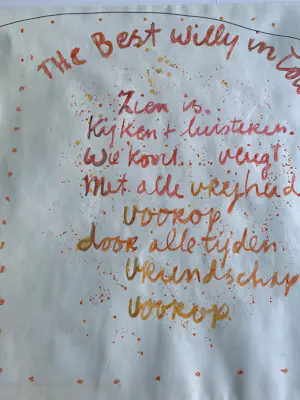 THE Best Willy in
Zien is.
Kijken + luisteren.
Met alle vrijheid
voorop
door alle tijden
vriendschap
voorop